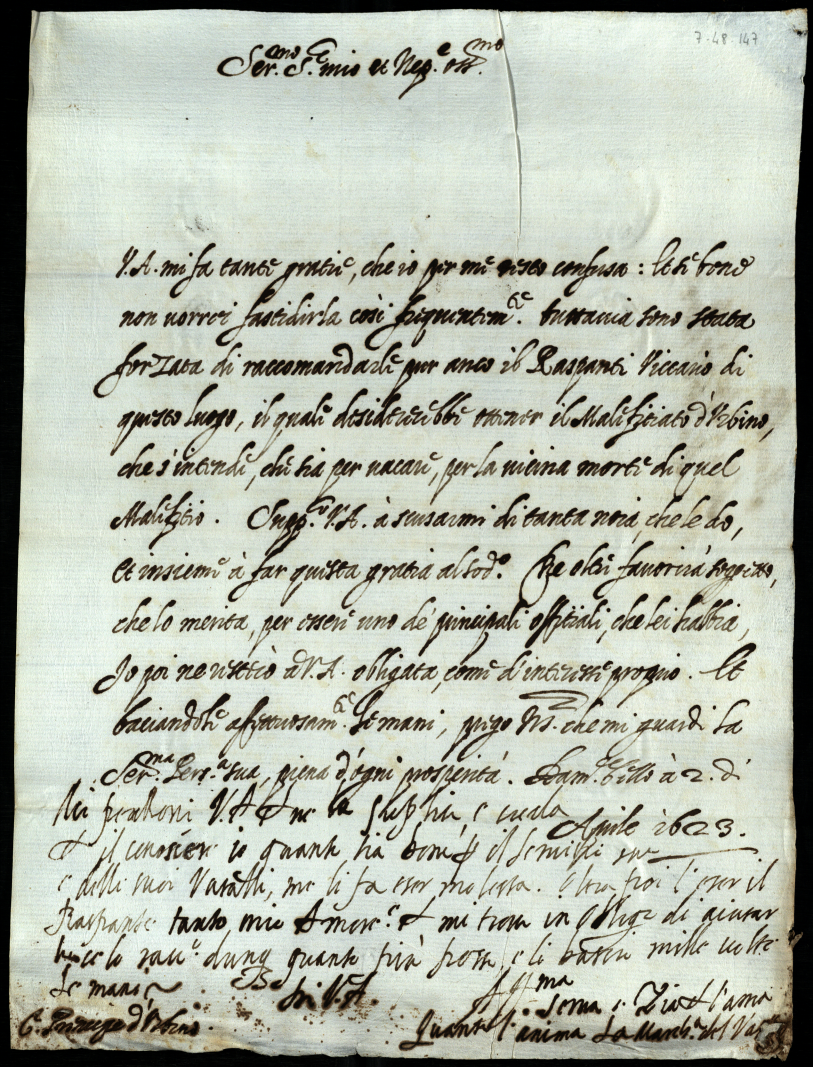 7-48-147
Ser.mo S.re mio et Nep.e oss.mo
V.A. mi fa tante gratie, che io per me resto confusa: Et se bene
non vorrei fastidirla così frequentem.te tuttavia sono stata
forzata di raccomandarle pur anco il Raspanti Viccario di
questo luogo, il quale desiderarebbe ottener il Malefitiato d'Urbino,
che s'intende, che sia per vacare, per la vicina morte di quel
Malefitio. Supp.co V.A. à scusarmi di tanta noia, che le do,
et insieme à far questa gratia al sod.o Che oltre favorirà soggetto,
che lo merita, per essere uno de' principali offitiali, che lei habbia,
Io poi ne resterò à V.A. obligata, come d'interesse proprio. Et
baciandole affettuosam.te le mani, prego N.S. che mi guardi la
Ser.ma Pers.a sua, piena d'ogni prosperità. Dam.te à 2. di
Aprile 1623.
Mi perdoni V.A. ne la suplico, e creda
il conoscere io quanto sia bene il servitio suo
e delli suoi Vasalli, me li fa eser molesta. oltra poi l'eser il
Raspante tanto mio Amorev.e mi trovo in oblige di aiutar
racc.o dunq quanto più posso e li bascio mille volte
le mani
Di V.A.
Aff.ma serva e Zia l'ama
S. Prencipe d'Urbino.
quanto l'anima La March.a del Vasto